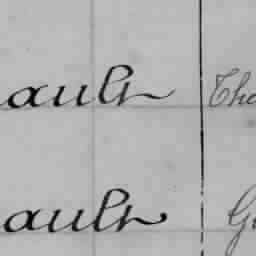 ault Tho
ault G